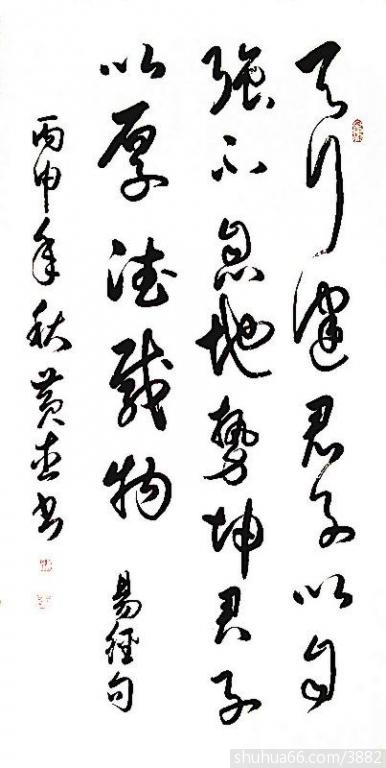 天行健君子以自
強不息地勢坤君子
以厚德載物 易經句
丙申年秋黄书
shuhua66.com/3882